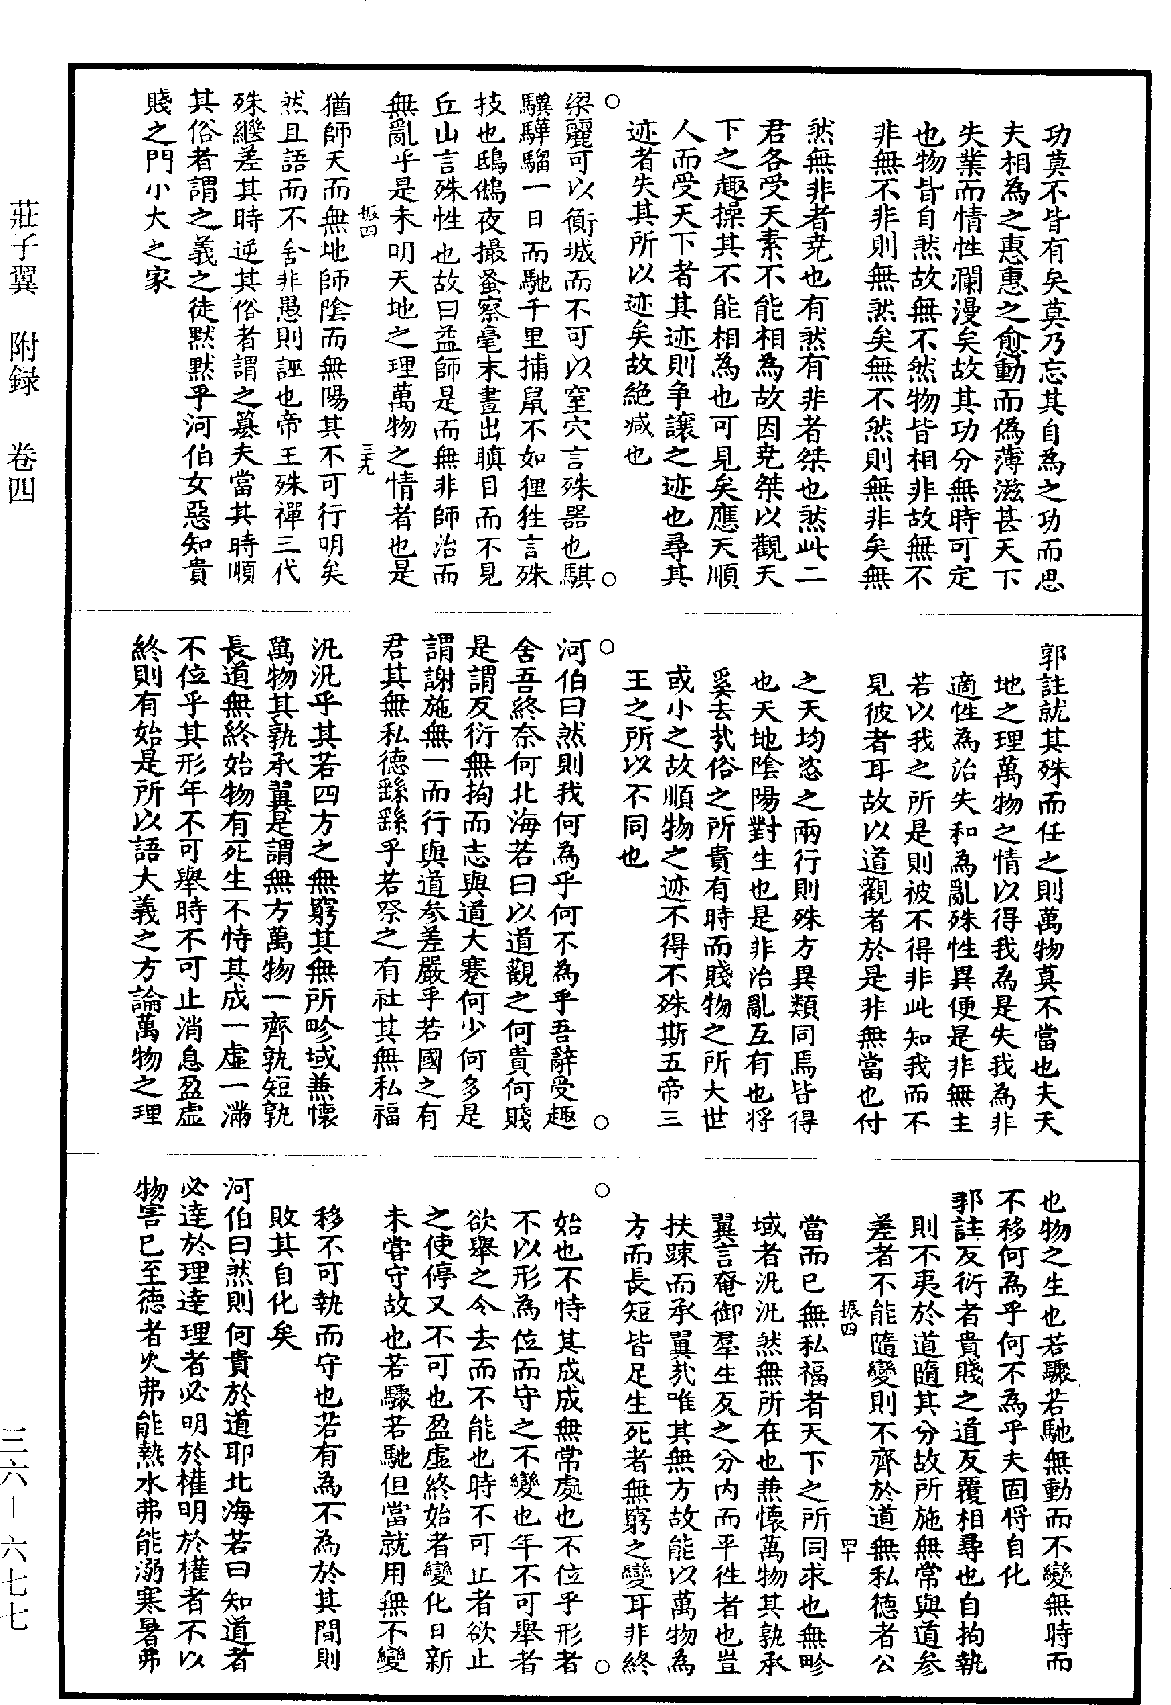 功莫不皆有矣莫乃忘其自為之功而思
夫相為之惠惠之愈動而偽薄滋甚天下
失業而情性瀾漫矣故其功分無時可定
也物皆自然故無不然物皆相非故無不
非無不非則無然矣無不然則無非矣無
然無非者堯也有然有非者桀也然此二
君各受天素不能相為故因堯桀以觀天
下之趣操其不能相為也可見矣應天順
人而受天下者其迹則爭讓之迹也尋其
迹者失其所以迹矣故絕滅也
○
梁麗可以衝城而不可以窒穴言殊器也騏
驥驊騮一日而馳千里捕鼠不如狸狌言殊
技也鴟鵂夜撮蚤察毫末晝出瞋目而不見
丘山言殊性也故曰蓋師是而無非師治而
無亂乎是未明天地之理萬物之情者也是
振四
三九
猶師天而無地師陰而無陽其不可行明矣
然且語而不舍非愚則誣也帝王殊禪三代
殊繼差其時逆其俗者謂之篡夫當其時順
其俗者謂之義之徒默默乎河伯女惡知貴
賤之門小大之家
郭註就其殊而任之則萬物莫不當也夫天
地之理萬物之情以得我為是失我為非
適性為治失和為亂殊性異便是非無主
若以我之所是則彼不得非此知我而不
見彼者耳故以道觀者於是非無當也付
之天均恣之兩行則殊方異類同焉皆得
也天地陰陽對生也是非治亂互有也將
奚去哉俗之所貴有時而賤物之所大世
或小之故順物之迹不得不殊斯五帝三
王之所以不同也
○
河伯曰然則我何為乎何不為乎吾辭受趣
舍吾終奈何北海若曰以道觀之何貴何賤
是謂反衍無拘而志與道大蹇何少何多是
謂謝施無一而行與道參差嚴乎若國之有
君其無私德繇繇乎若祭之有社其無私福
汎汎乎其若四方之無窮其無所畛域兼懷
萬物其孰承翼是謂無方萬物一齊孰短孰
長道無終始物有死生不恃其成一虛一滿
不位乎其形年不可舉時不可止消息盈虛
終則有始是所以語大義之方論萬物之理
也物之生也若驟若馳無動而不變無時而
不移何為乎何不為乎夫固將自化
郭註反衍者貴賤之道反覆相尋也自拘執
則不夷於道隨其分故所施無常與道參
差者不能隨變則不齊於道無私德者公
振四
四十
當而已無私福者天下之所同求也無畛
域者汎汎然無所在也兼懷萬物其孰承
翼言奄御羣生反之分內而平往者也豈
扶踈而承翼哉唯其無方故能以萬物為
方而長短皆足生死者無窮之變耳非終
○
始也不恃其成成無常處也不位乎形者
不以形為位而守之不變也年不可舉者
欲舉之令去而不能也時不可止者欲止
之使停又不可也盈虛終始者變化日新
未嘗守故也若驟若馳但當就用無不變
移不可執而守也若有為不為於其間則
敗其自化矣
河伯曰然則何貴於道耶北海若曰知道者
必達於理達理者必明於權明於權者不以
物害己至德者火弗能熱水弗能溺寒暑弗
莊子翼　附録　卷四
三六—六七七